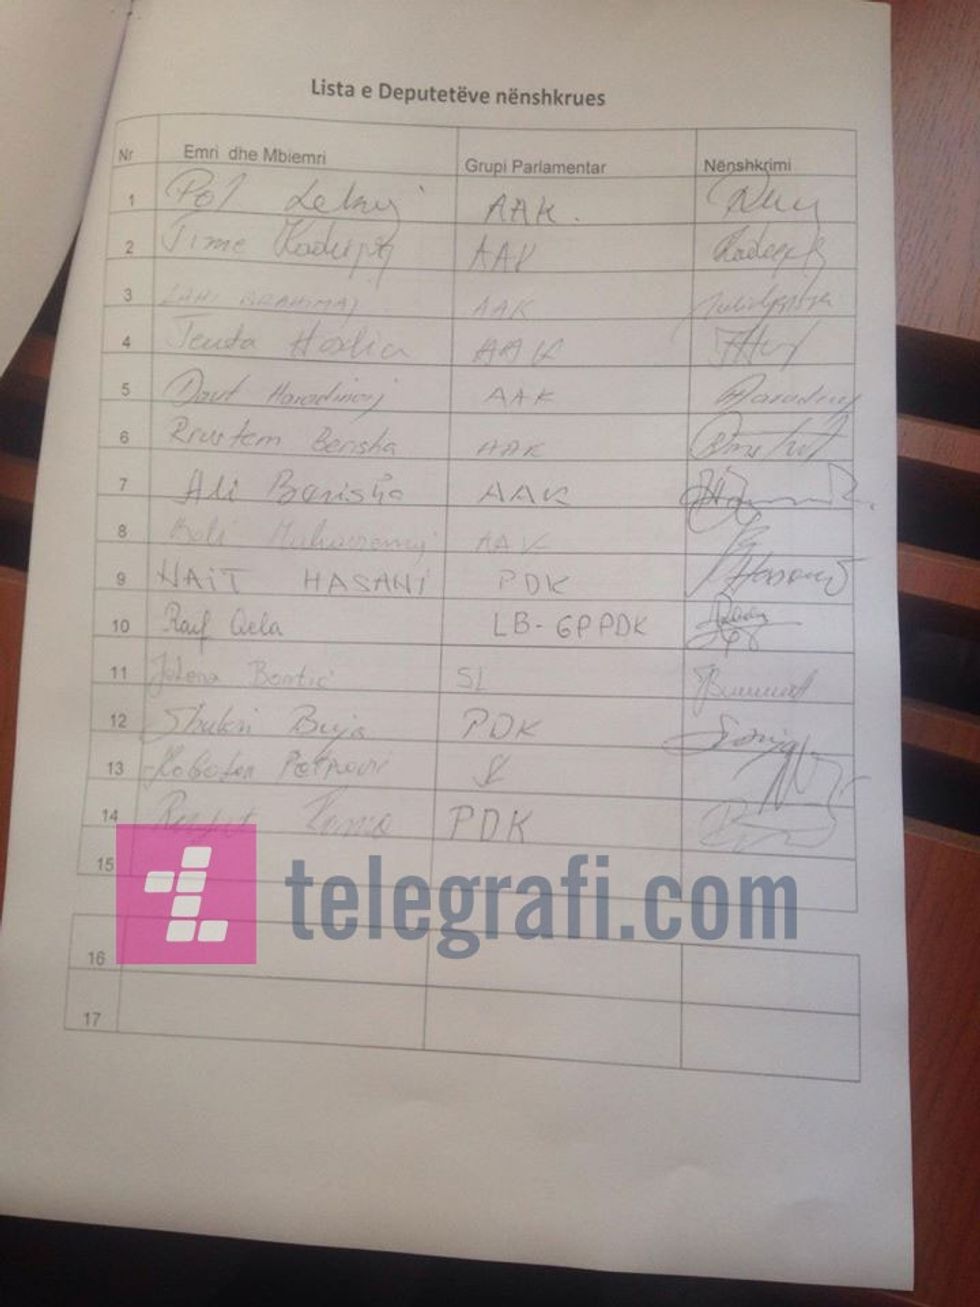 Lista e Deputetëve nënshkrues
Nr Emri dhe Mbiemri Grupi Parlamentar Nënshkrimi
1 Pol Lekaj AAK.
2 Time Kadrijaj AAK
3 LAHI BRAHIMAJ AAK
4 Teuta Haxhiu AAK
5 Daut Haradinaj AAK
6 Rrustem Berisha AAK
7 Ali Berisha AAK
8 Bali Muharremaj AAK
9 HAJT HASANI PDK
10 Raif Qela LB-GPPDK
11 Jelena Bontić SL
12 Shukri Buja PDK
13 Petrović
14 PDK
15
telegrafi.com
16
17